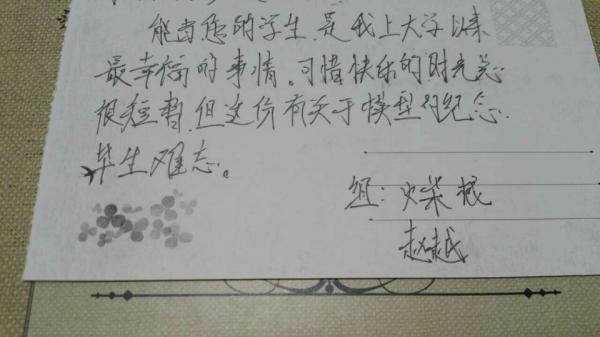 能当您的学生,是我上大学以来
最幸福的事情。可惜快乐的时光总
很短暂,但这份有关于模型的纪念,
毕生难忘。
组:火柴棍
赵越